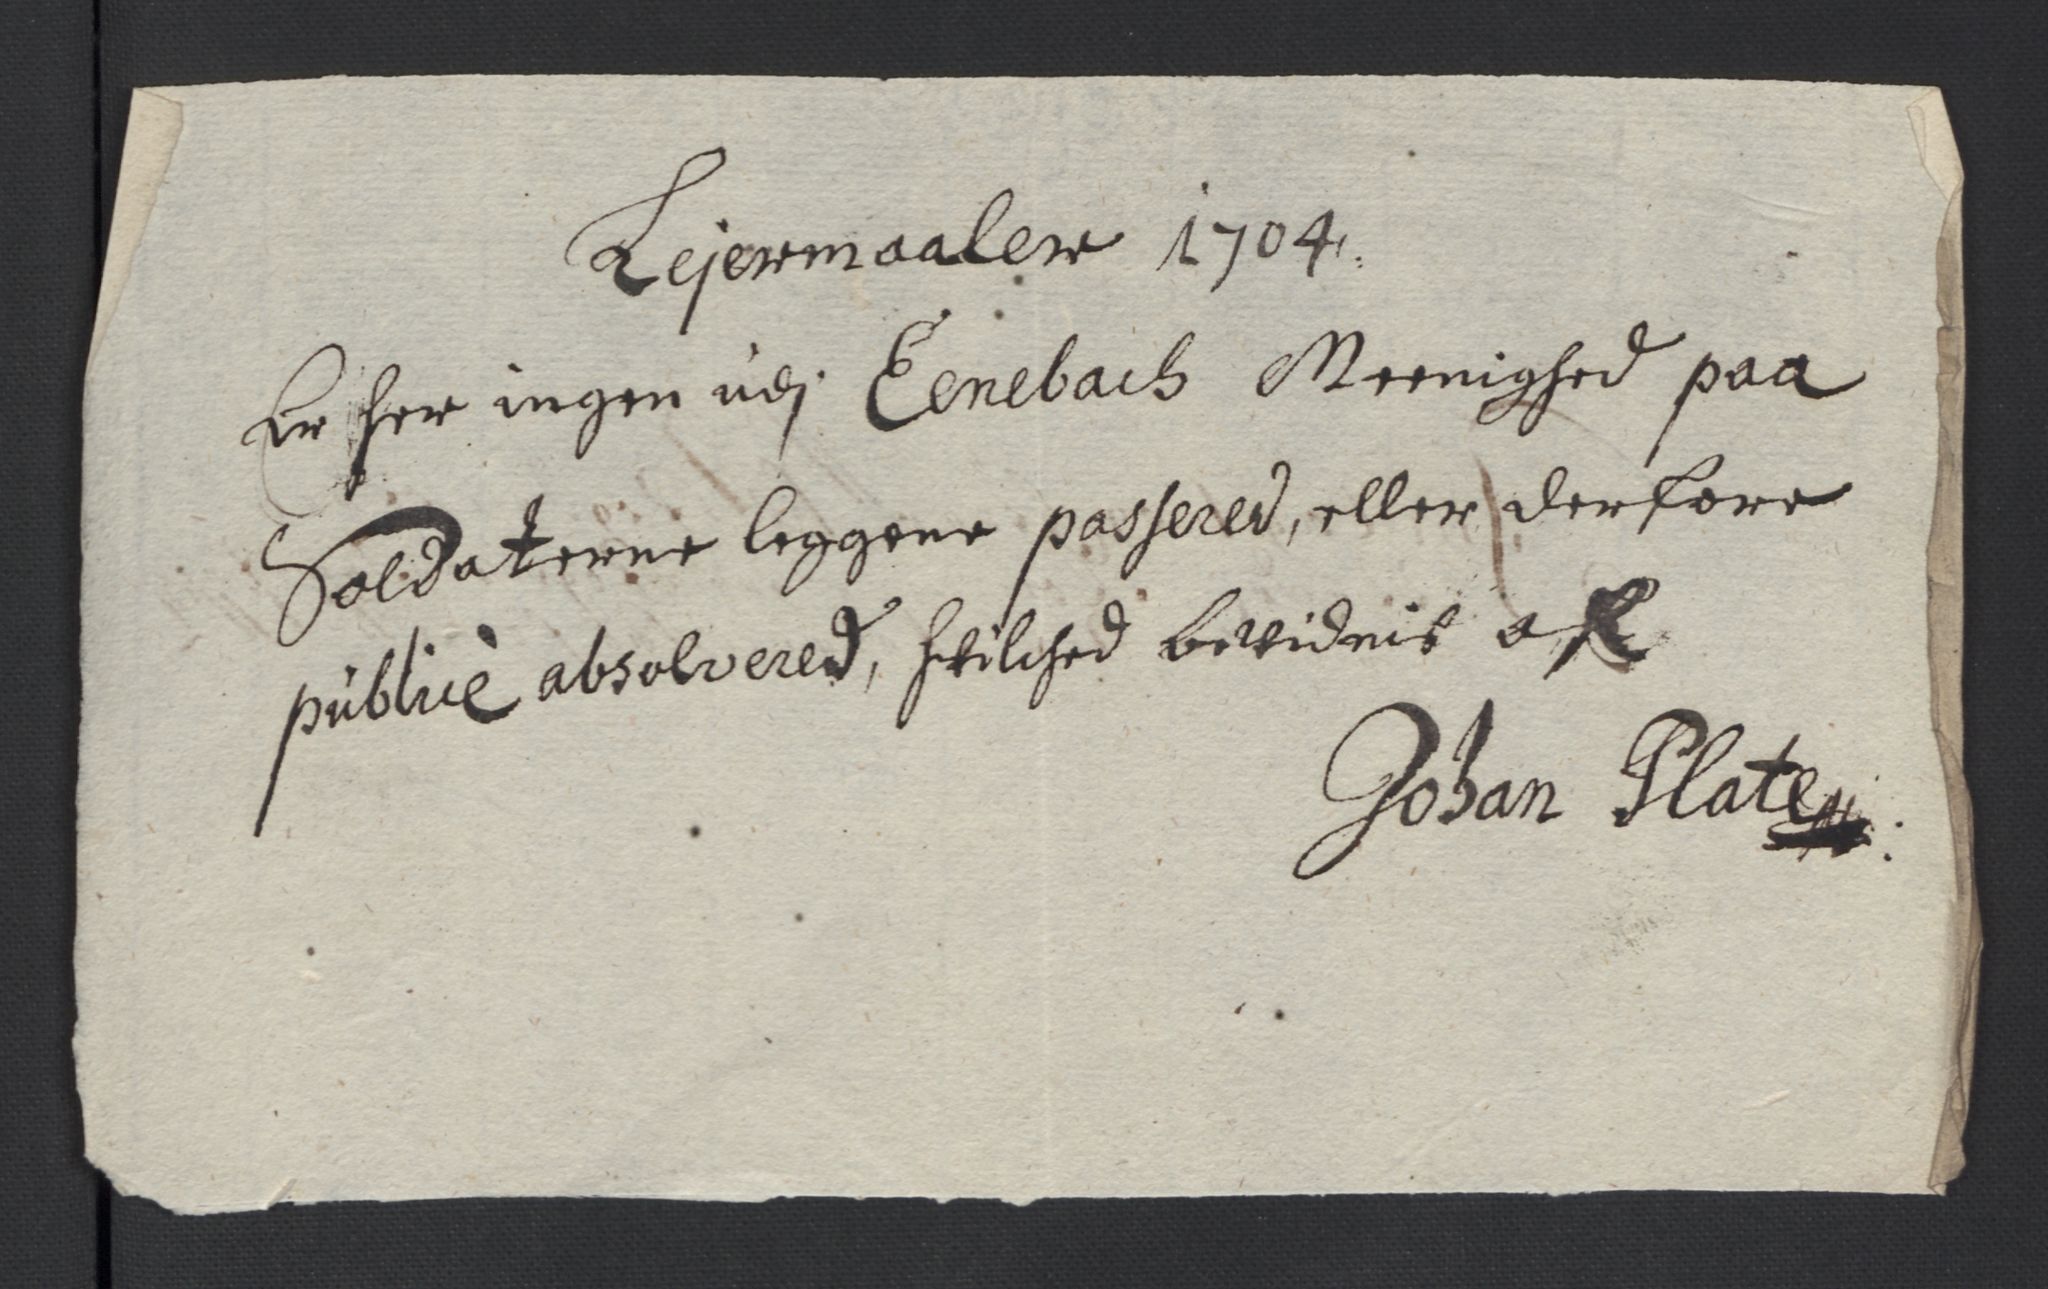 Lejermaaler 1704.
Er her ingen udj Eenebach Meenighed paa
Soldaterne leggene passered, eller derfore
publicè absolvered, hvilched bevidnis af
Johan Platen